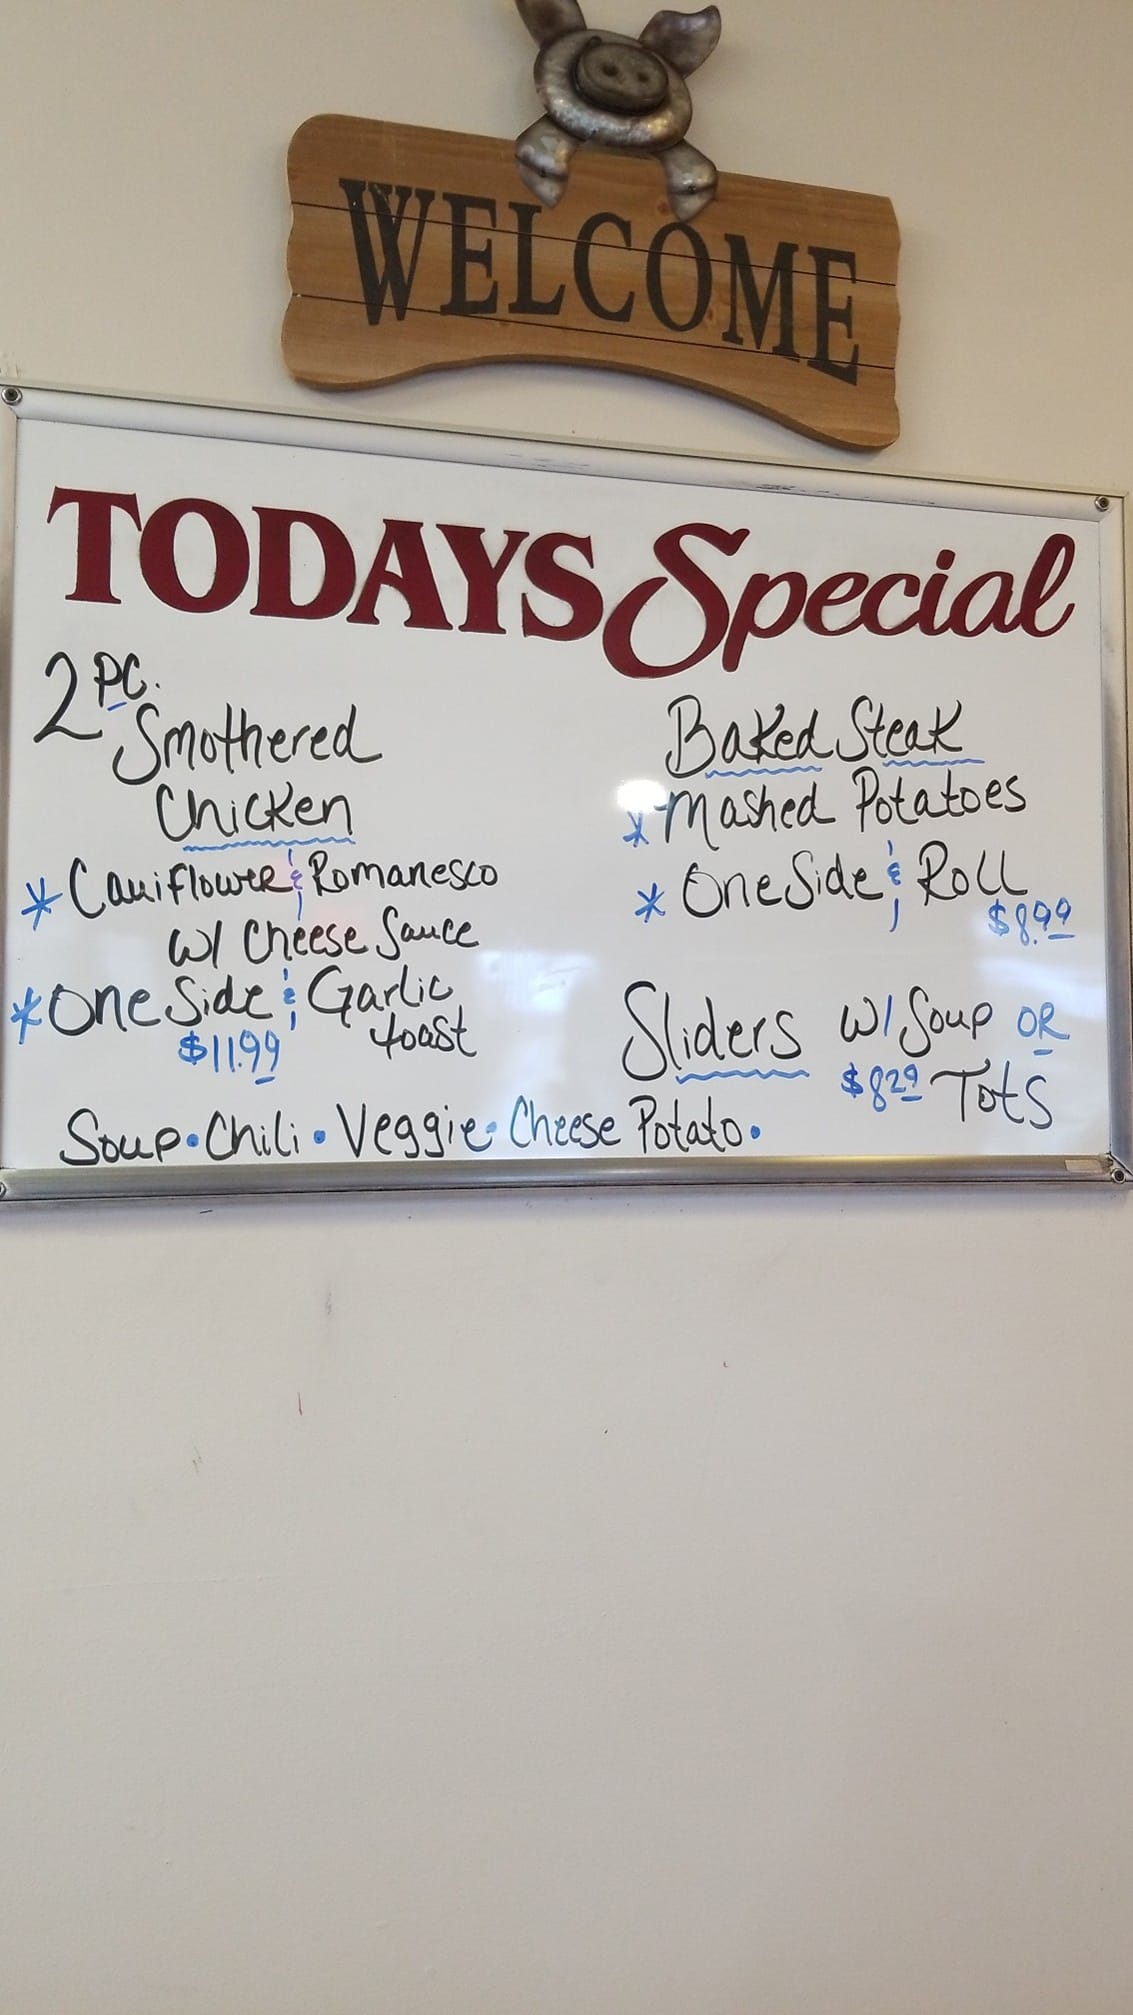 WELCOME
TODAYS Special
2 PC.
Smothered
Chicken
* Cauiflower & Romanesco
w/ Cheese Sauce
* One Side & Garlic
toast
$11.99
Baked Steak
* Mashed Potatoes
* One Side & Roll
$8.99
Sliders w/ Soup OR
$8.29 Tots
Soup • Chili • Veggie • Cheese Potato •